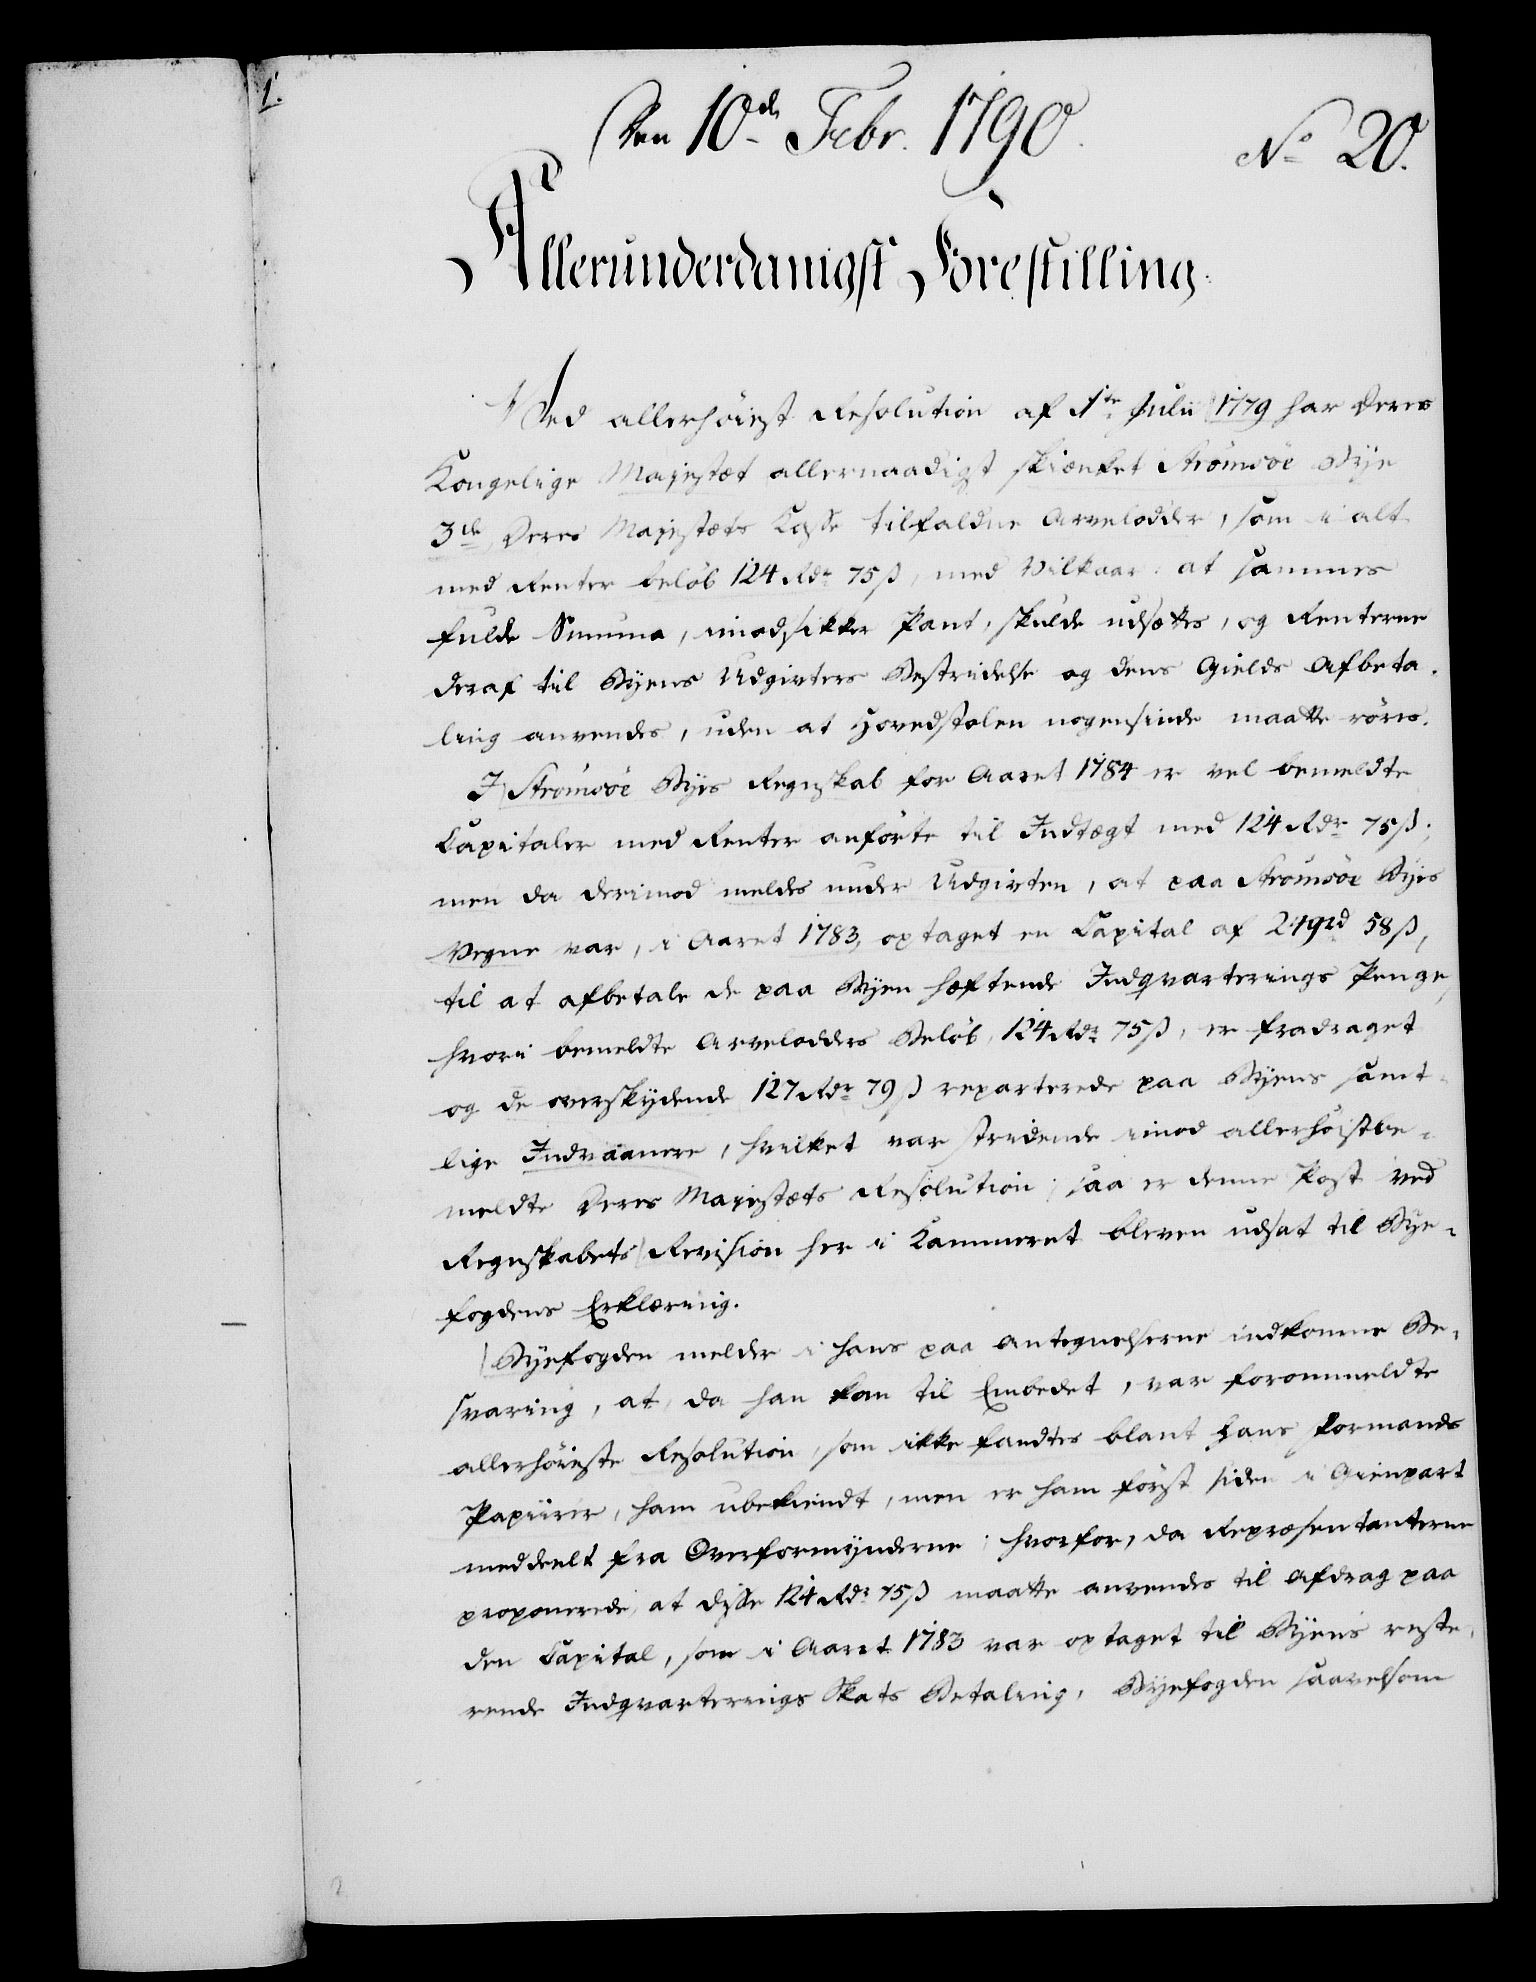 1.
Den 10de Febr. 1790.
No 20.
Allerunderdanigst Forestilling.
Ved allerhöiest Resolution af 1te Julii 1779 har Deres
Kongelige Majestæt allernaadigst skienket Strömsöe Bye
3de, Deres Majestæts Casse tilfaldne Arvelodder, som i alt
med Renter beløb 124 Rdr 75 ß, med Vilkaar: at sammes
fulde Summa, imod sikker Pant, skulde udsættes, og Renterne
deraf til Byens Udgivters Bestridelse og dens Gields Afbeta-
ling anvendes, uden at Hovedstolen nogensinde maatte röres.
I Strömsöe Byes Regnskab for Aaret 1784 er vel bemeldte
Capitaler med Renter anförte til Indtægt med 124 Rdr 75 ß;
men da derimod meldes under Udgivten, at paa Strömsöe Byes
Vegne var, i Aaret 1783, optaget en Capital af 249rd 58 ß,
til at afbetale de paa Byen hæftende Indqvarterings Penge,
hvori bemeldte Arvelodders Belöb, 124 Rdr 75 ß, er fradraget
og de overskydende 127 Rdr 79 ß reparterede paa Byens samt-
lige Indvaanere, hvilket var stridende imod allerhöistbe-
meldte Deres Majestæts Resolution; saa er denne Post ved
Regnskabets Revision her i Kammeret bleven udsat til Bye-
fogdens Erklæring.
Byefogden melder i hans paa Antegnelserne indkomne Be-
svaring, at, da han kom til Embedet, var forommeldte
allerhöieste Resolution, som ikke fandtes blant hans Formands
Papiirer, ham ubekiendt, men er ham först siden i Gienpart
meddeelt fra Overformynderne; hvorfor, da Repræsentanterne
proponerede, at disse 124 Rdr 75 ß maatte anvendes til Afdrag paa
den Capital, som i Aaret 1783 var optaget til Byens reste-
rende Indqvarterings Skats Betaling, Byefogden saavelsom